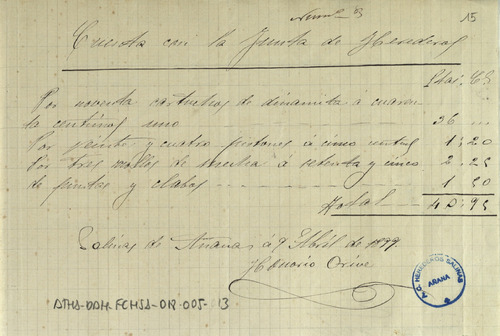 Numº 3
15
Cuenta con la Junta de Herederos
Ptas: Cs
Por noventa cartuchos de dinamita á cuaren
ta centimos uno 36 ...
Por veinte y cuatro pistones á cinco centms 1:20
Por tres rollos de mecha á setenta y cinco 2:25
de puntas y clabos 1 50
Total 40:95
Salinas de Añana á 9 Abril de 1899
Honorio Orive
A.C. HEREDEROS SALINAS
AÑANA
ATHA-DAH-FCHSA-018-005-13